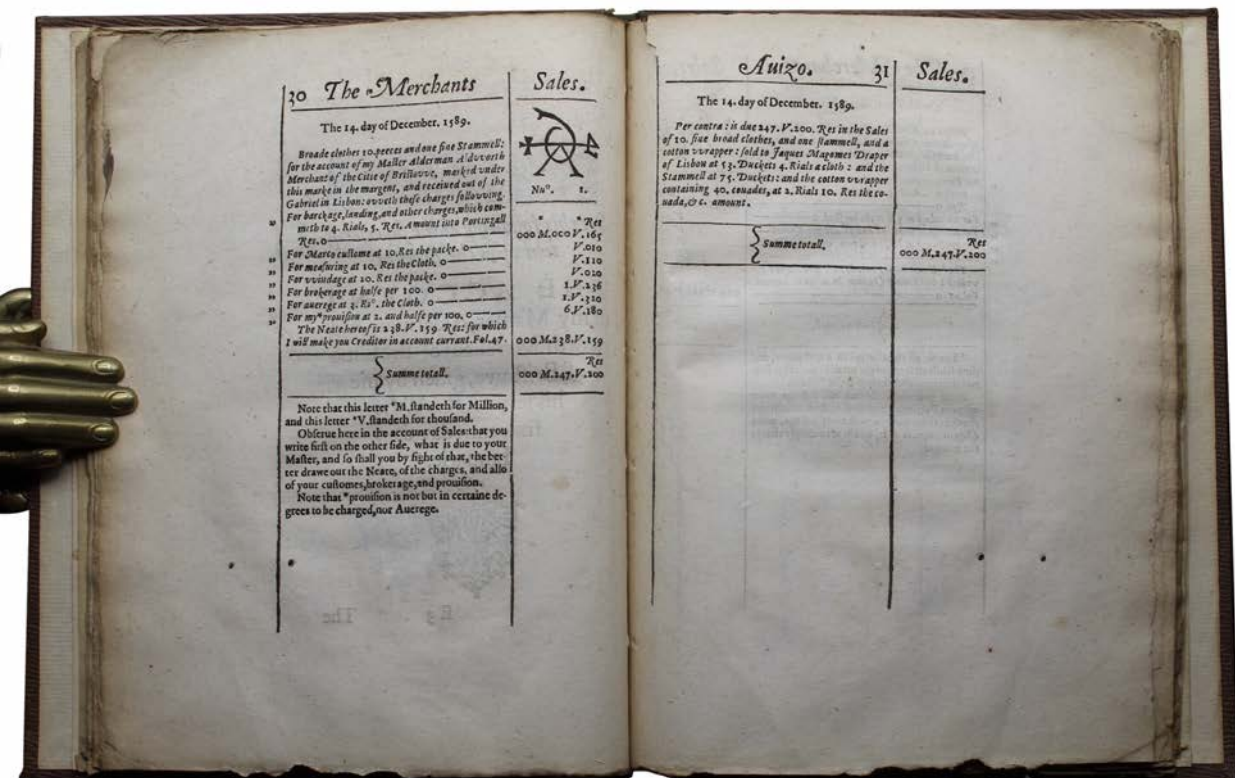 30 The Merchants
Sales.
The 14. day of December. 1589.
Broade clothes 10. peeces and one fine Stammell:
for the account of my Maister Alderman Aldvvorth
Merchant of the Citie of Bristovve, marked vnder
this marke in the margent, and receiued out of the
Gabriel in Lisbon: ovveth these charges follovving.
For barckage, landing, and other charges, which com-
meth to 4. Rials, 5. Res. Amount into Portingall
Res. o
Nuº. 1.
* * Res
000 M.000 V.165
For Marco custome at 10. Res the packe. o V.010
For measuring at 10. Res the Cloth. o V.110
For vvindage at 20. Res the packe. o V.020
For brokerage at halfe per 100. o 1.V.236
For auerege at 3. Riº. the Cloth. o 1.V.320
For my *prouision at 2. and halfe per 100. o 6.V.180
The Neate hereof is 238.V.159 Res: for which
I will make you Creditor in account currant. Fol.47. 000 M.238.V.159
Summe totall.
Res
000 M.247.V.200
Note that this letter *M. standeth for Million,
and this letter *V. standeth for thousand.
Obserue here in the account of Sales that you
write first on the other side, what is due to your
Master, and so shall you by sight of that, the bet-
ter drawe out the Neate, of the charges, and also
of your customes, brokerage, and prouision.
Note that *prouision is not but in certaine de-
grees to be charged, nor Auerege.
Auizo. 31
Sales.
The 14. day of December. 1589.
Per contra: is due 247.V.200. Res in the Sales
of 10. fine broad clothes, and one stammell, and a
cotton vvrapper: sold to Jaques Magomes Draper
of Lisbon at 53. Duckets 4. Rials a cloth: and the
Stammell at 75. Duckets: and the cotton vvrapper
containing 40. couades, at 2. Rials 10. Res the co-
uada, & c. amount.
Summe totall.
Res
000 M.247.V.200